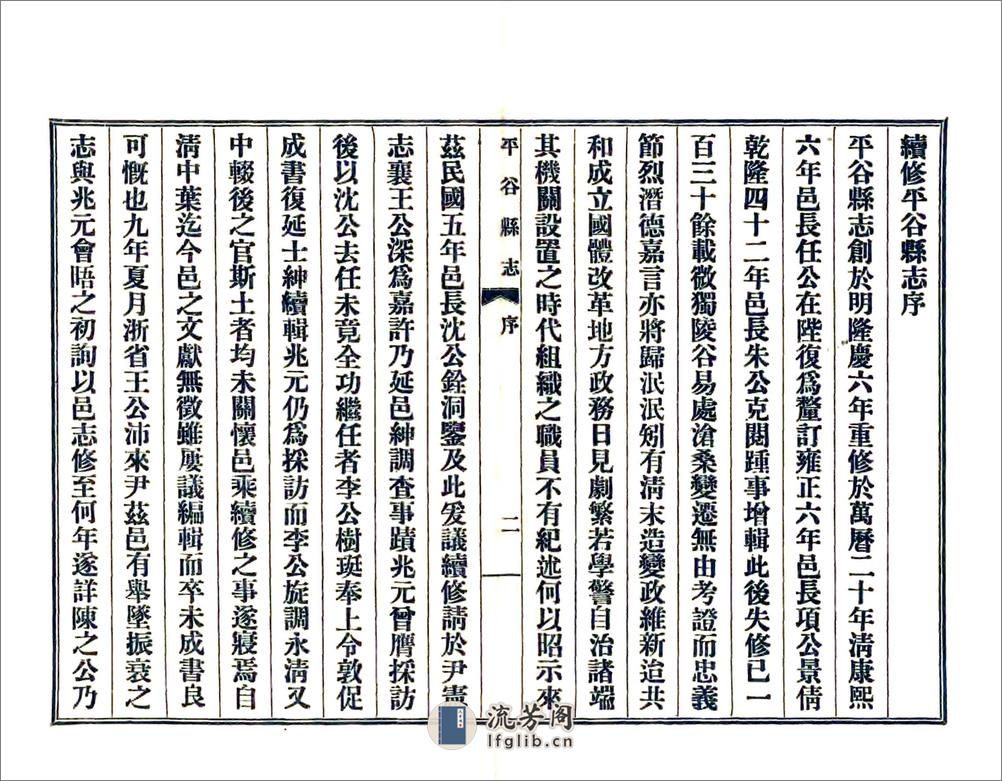 續修平谷縣志序
平谷縣志創於明隆慶六年重修於萬曆二十年淸康熙
六年邑長任公在陛復爲釐訂雍正六年邑長項公景倩
乾隆四十二年邑長朱公克閱踵事增輯此後失修已一
百三十餘載微獨陵谷易處滄桑變遷無由考證而忠義
節烈潛德嘉言亦將歸泯泯矧有淸末造變政維新迨共
和成立國體改革地方政務日見劇繁若學警自治諸端
其機關設置之時代組織之職員不有紀述何以昭示來
平谷縣志 序 二
茲民國五年邑長沈公銓洞鑒及此爰議續修請於尹憲
志襄王公深爲嘉許乃延邑紳調查事蹟兆元曾膺採訪
後以沈公去任未竟全功繼任者李公樹珽奉上令敦促
成書復延士紳續輯兆元仍爲採訪而李公旋調永淸又
中輟後之官斯土者均未關懷邑乘續修之事遂寢焉自
淸中葉迄今邑之文獻無徵雖屢議編輯而卒未成書良
可慨也九年夏月浙省王公沛來尹茲邑有舉墜振衰之
志與兆元會晤之初詢以邑志修至何年遂詳陳之公乃
流芳阁
lfglib.cn